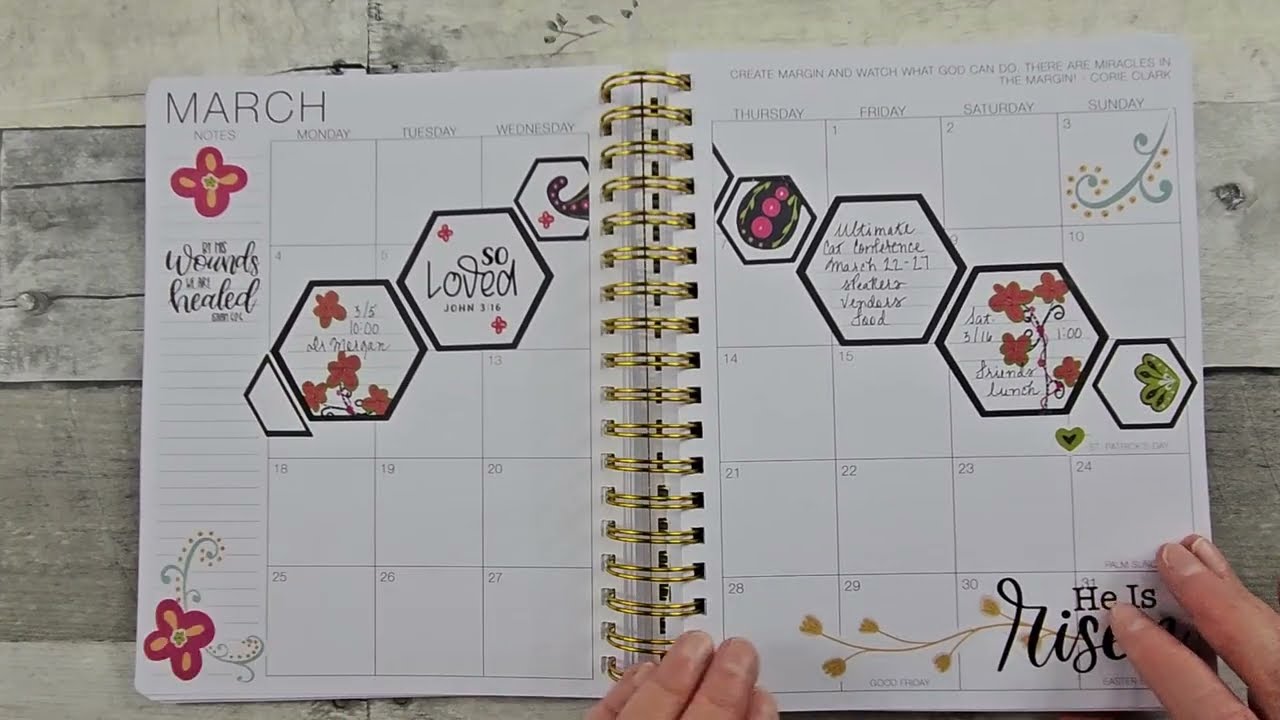 MARCH
NOTES
MONDAY
TUESDAY
WEDNESDAY
BY HIS
Wounds
WE ARE
healed
4
5
3/5
10:00
Dr Morgan
SO
Loved
JOHN 3:16
13
18
19
20
25
26
27
CREATE MARGIN AND WATCH WHAT GOD CAN DO. THERE ARE MIRACLES IN
THE MARGIN! - CORIE CLARK
THURSDAY
FRIDAY
SATURDAY
SUNDAY
1
2
3
7
9
10
Ultimate
Car Conference
March 22-27
Vendors
Food
14
15
Sat
3/16
1:00
Friends
Lunch
ST. PATRICK'S DAY
21
22
23
24
28
29
30
31
GOOD FRIDAY
He Is
risen